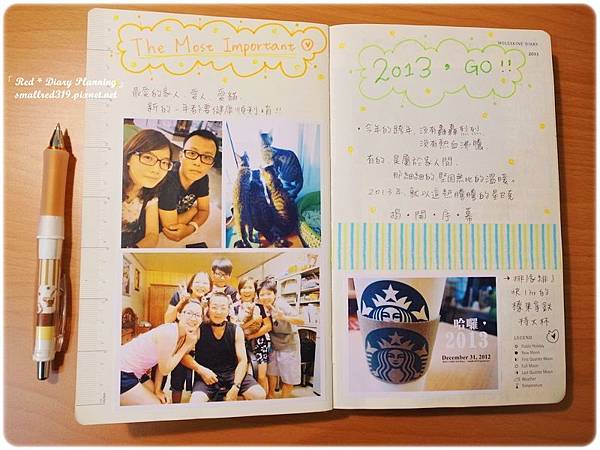 「Red * Diary Planning」
smallred319.pixnet.net
The Most Important
最愛的家人、愛人、愛貓
新的一年都要健康順利唷!!
MOLESKINE DIARY
2013
2013, GO!!
今年的跨年 沒有轟轟烈烈
沒有熱血沸騰
有的,是屬於家人間,
那細細的、堅固無比的溫暖。
2013年,就以這熱騰騰的星巴克
揭、開、序、幕
→排隊排了
快1hr的
榛果拿鐵
特大杯
哈囉,
2013
December 31, 2012
LEGEND
Public Holiday
New Moon
First Quarter Moon
Full Moon
Last Quarter Moon
Weather
Temperature